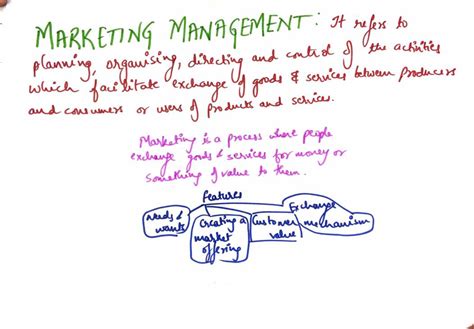 MARKETING MANAGEMENT: It refers to
planning, organising, directing and control of the activities
which facilitate exchange of goods & services between producers
and consumers or users of products and services.
Marketing is a process where people
exchange goods & services for money or
something of value to them.
Features
Needs & wants
Creating a market offering
Customer value
Exchange mechanism